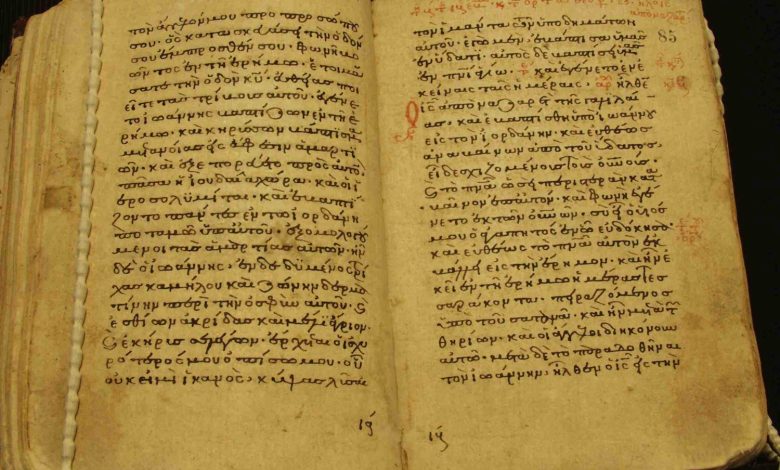 τὸν ἄγγελόν μου πρὸ προσώπου
σου. ὃς κατασκευάσει τὴν ὁδόν
σου ἔμπροσθέν σου. φωνὴ βο
ῶντος ἐν τῇ ἐρήμω. ἑτοιμά
σατε τὴν ὁδὸν κυ. εὐθείας ποι
εῖτε τὰς τρίβους αὐτοῦ. ἐγένε
το ἰωάννης βαπτίζων ἐν τῇ ἐ
ρήμω. καὶ κηρύσσων βάπτισμα
μετανοίας εἰς ἄφεσιν ἁμαρτι
ῶν. καὶ ἐξεπορεύετο πρὸς αὐτὸν
πᾶσα ἡ ἰουδαία χώρα. καὶ οἱ ἱ
εροσολυμῖται. καὶ ἐβαπτί
ζοντο πάντες ἐν τῶ ἰορδάνη
ποταμῶ ὑπ' αὐτοῦ. ἐξομολογού
μενοι τὰς ἁμαρτίας αὐτῶν. ἦν
δὲ ὁ ἰωάννης. ἐνδεδυμένος τρί
χας καμήλου καὶ ζώνην δερμα
τίνην περὶ τὴν ὀσφὺν αὐτοῦ. καὶ
ἐσθίων ἀκρίδας καὶ μέλι ἄγριον.
καὶ ἐκήρυσσε λέγων. ἔρχεται ὁ ἰσχυ
ρότερός μου ὀπίσω μου. οὗ
οὐκ εἰμὶ ἱκανὸς, κύψας λῦσαι
τὸν ἱμάντα τῶν ὑποδημάτων
αὐτοῦ. ἐγὼ μὲν ἐβάπτισα ὑμᾶς
ἐν ὕδατι. αὐτὸς δὲ βαπτίσει ὑμᾶς
ἐν πνι ἁγίω. καὶ ἐγένετο ἐν ἐ
κείναις ταῖς ἡμέραις. ἦλθεν
ὁ ις ἀπὸ ναζαρὲτ τῆς γαλιλαί
ας. καὶ ἐβαπτίσθη ὑπὸ ἰωάννου
εἰς τὸν ἰορδάνην. καὶ εὐθέως
ἀναβαίνων ἀπὸ τοῦ ὕδατος.
εἶδε σχιζομένους τοὺς οὐνούς.
καὶ τὸ πνα ὡσεὶ περιστερὰν κατα
βαῖνον ἐπ' αὐτόν. καὶ φωνὴ ἐγέ
νετο ἐκ τῶν οὐνῶν. σὺ εἶ ὁ υἱός
μου ὁ ἀγαπητὸς ἐν ᾧ εὐδόκησα.
καὶ εὐθέως τὸ πνα αὐτὸν ἐκ
βάλλει εἰς τὴν ἔρημον. καὶ ἦν ἐ
κεῖ ἐν τῇ ἐρήμω ἡμέρας
σαράκοντα. πειραζόμενος
ὑπὸ τοῦ σατανᾶ. καὶ ἦν μετὰ τῶν
θηρίων. καὶ οἱ ἄγγελοι διηκόνουν
αὐτῶ. μετὰ δὲ τὸ παραδοθῆναι
τὸν ἰωάννην. ἦλθεν ὁ ις εἰς τὴν
85